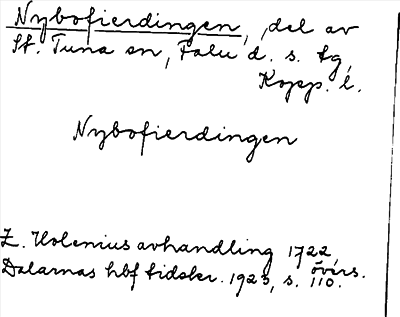 Nybofierdingen, del av
St. Tuna sn, Falu d. s. tg,
Kopp. l.
Nybofierdingen
E. Holenius avhandling 1722,
övers.
Dalarnas hbf tidskr. 1923, s. 110.